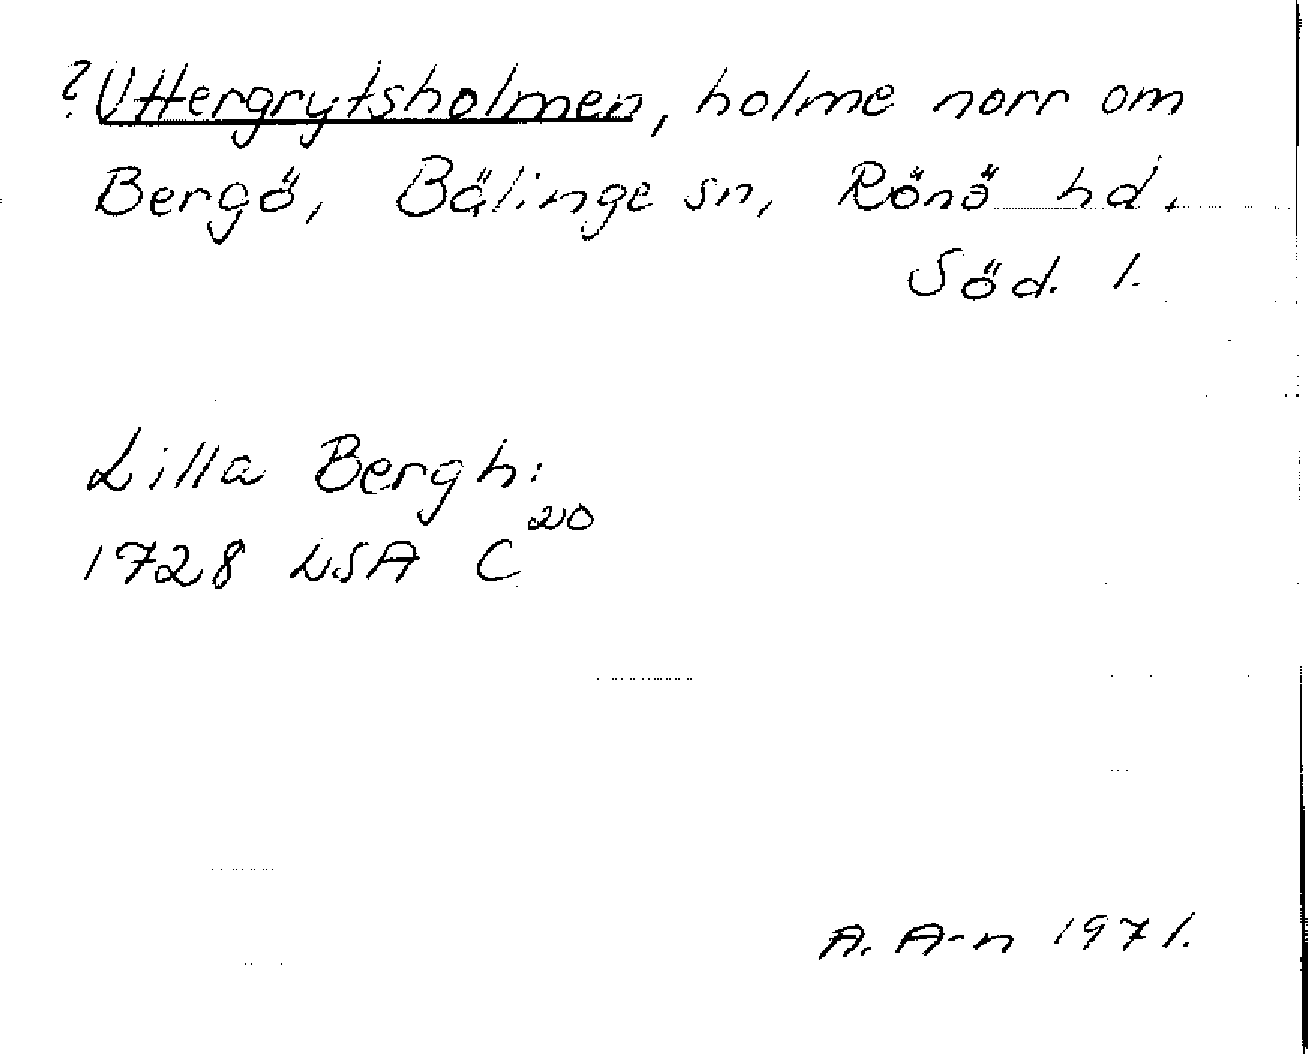 ? Uttergrytsholmen, holme norr om
Bergö, Bälinge sn, Rönö hd.
Söd. l.
Lilla Bergh:
1728 LSA C²⁰
A. A-n 1971.